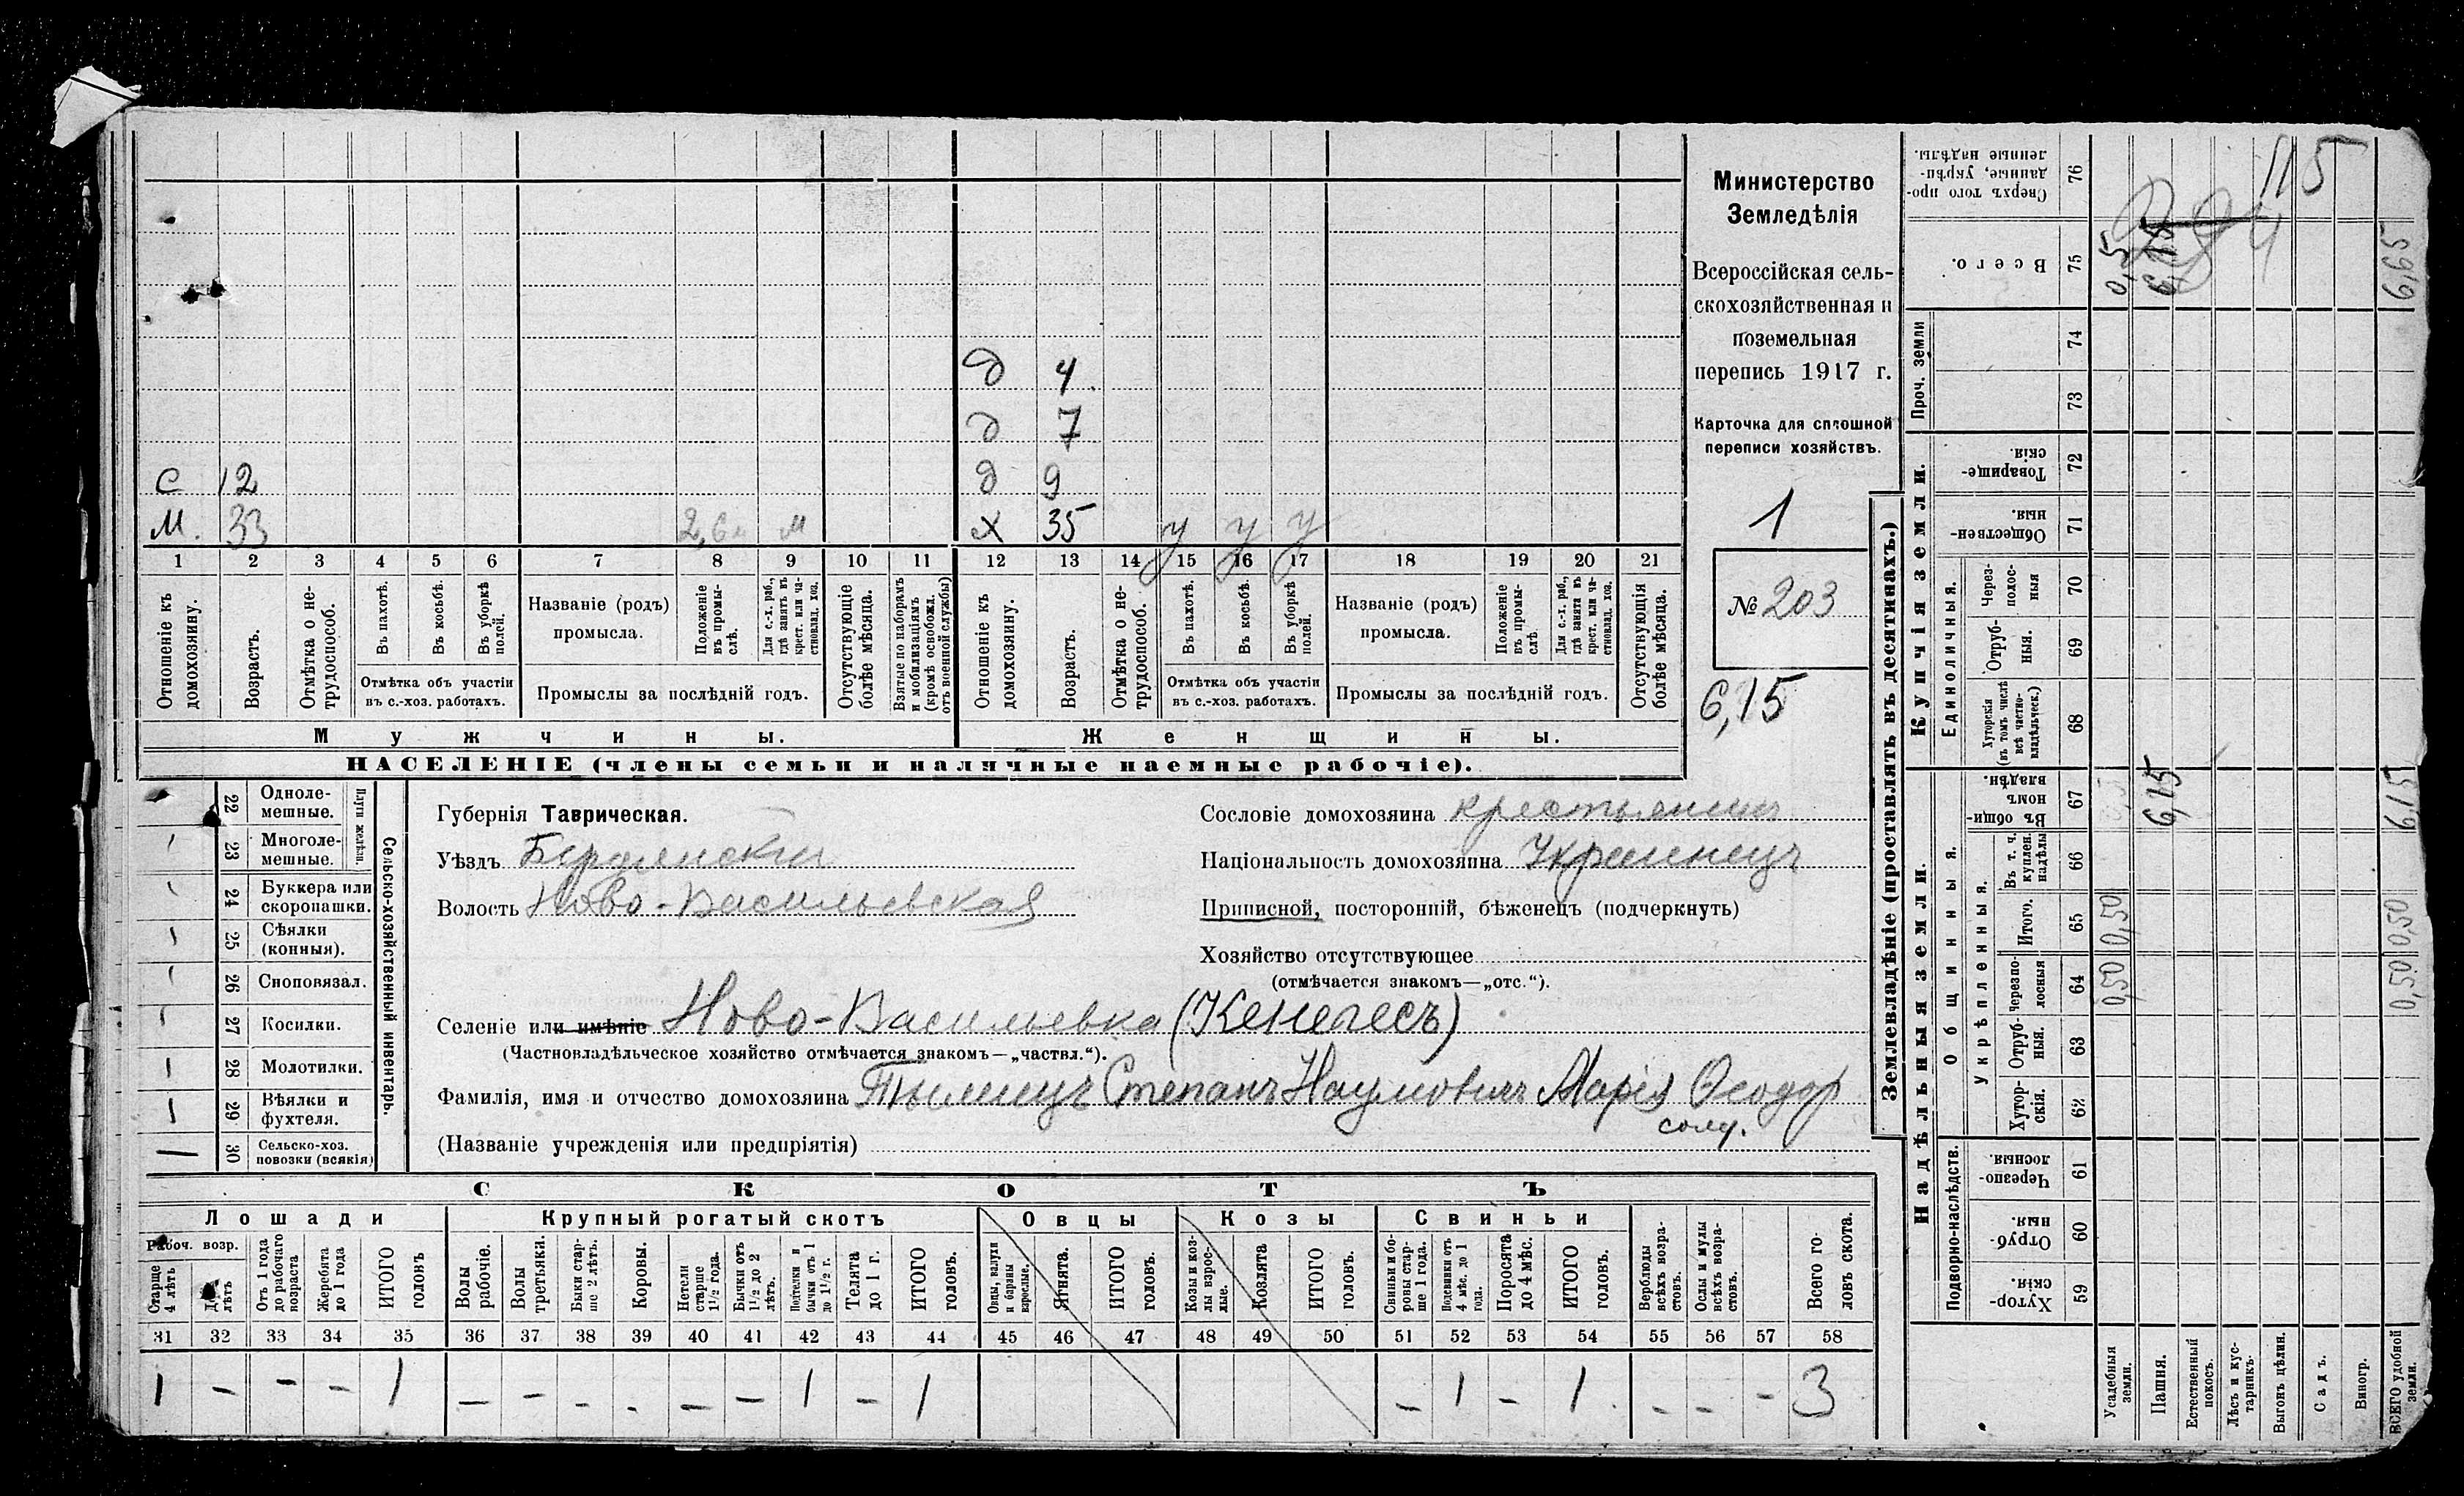 Министерство
Земледѣлія
Всероссійская сель-
скохозяйственная и
поземельная
перепись 1917 г.
Карточка для сплошной
переписи хозяйствъ.
1
№ 203
6,15
д 4.
д 7
с 12 д 9
М. 33 м х 35 у у у
1 2 3 4 5 6 7 8 9 10 11 12 13 14 15 16 17 18 19 20 21
Отношеніе къ домохозяину.
Возрастъ.
Отмѣтка о не-трудоспособ.
Въ пахотѣ.
Въ косьбѣ.
Въ уборкѣ полей.
Отмѣтка объ участіи
въ с.-хоз. работахъ.
Названіе (родъ)
промысла.
Положеніе въ промы-слѣ.
Для с.-х. раб., гдѣ занятъ въ крест. или ча-стновлад. хоз.
Промыслы за послѣдній годъ.
Отсутствующіе болѣе мѣсяца.
Взятые по наборамъ и мобилизаціямъ (кромѣ освобожд. отъ военной службы)
Отношеніе къ домохозяину.
Возрастъ.
Отмѣтка о не-трудоспособ.
Въ пахотѣ.
Въ косьбѣ.
Въ уборкѣ полей.
Отмѣтка объ участіи
въ с.-хоз. работахъ.
Названіе (родъ)
промысла.
Положеніе въ промы-слѣ.
Для с.-х. раб., гдѣ занята въ крест. или ча-стновлад. хоз.
Промыслы за послѣдній годъ.
Отсутствующія болѣе мѣсяца.
Мужчины. Женщины.
НАСЕЛЕНІЕ (члены семьи и наличные наемные рабочіе).
22 Одноле-мешные.
23 Многоле-мешные.
Плуги желѣзн.
24 Буккера или скоропашки.
25 Сѣялки (конныя).
26 Сноповязал.
27 Косилки.
28 Молотилки.
29 Вѣялки и фухтеля.
30 Сельско-хоз. повозки (всякія)
Сельско-хозяйственный инвентарь.
Губернія Таврическая.
Уѣздъ Бердянскій
Волость Ново-Васильевская
Сословіе домохозяина крестьянинъ
Національность домохозяина Украинецъ
Приписной, посторонній, бѣженецъ (подчеркнуть)
Хозяйство отсутствующее
(отмѣчается знакомъ—„отс.“).
Селеніе или имѣніе Ново-Васильевка (Кенегесъ)
(Частновладѣльческое хозяйство отмѣчается знакомъ—„частвл.“).
Фамилія, имя и отчество домохозяина Степанъ Наумовичъ Марія Ѳеодор
солд.
(Названіе учрежденія или предпріятія)
СКОТЪ
Лошади Крупный рогатый скотъ Овцы Козы Свиньи
Рабоч. возр.
Старше 4 лѣтъ
До 4 лѣтъ
Отъ 1 года до рабочаго возраста
Жеребята до 1 года
ИТОГО головъ
Волы рабочіе.
Волы третьяки.
Быки стар-ше 2 лѣтъ.
Коровы.
Нетели старше 1½ года.
Бычки отъ 1½ до 2 лѣтъ.
Подтелки и бычки отъ 1 до 1½ г.
Телята до 1 г.
ИТОГО головъ.
Овцы, валухи и бараны взрослые.
Ягнята.
ИТОГО головъ.
Козы и коз-лы взрос-лые.
Козлята
ИТОГО головъ.
Свиньи и бо-ровы стар-ше 1 года.
Подсвинки отъ 4 мѣс. до 1 года.
Поросята до 4 мѣс.
ИТОГО головъ.
Верблюды всѣхъ возра-стовъ.
Ослы и мулы всѣхъ возра-стовъ.
Всего го-ловъ скота.
31 32 33 34 35 36 37 38 39 40 41 42 43 44 45 46 47 48 49 50 51 52 53 54 55 56 57 58
1 - - - 1 - - - - - - 1 - 1 - 1 - 1 - - - 3
Землевладѣніе (проставлять въ десятинахъ.)
Надѣльныя земли. Купчія земли.
Проч. земли
Подворно-наслѣдств.
Общинныя.
Укрѣпленныя.
Единоличныя.
Сверхъ того про-данные, укрѣп-ленные надѣлы. 76
Всего. 75 0,5 6,15 6,65
74
73
Товарище-скія. 72
Обществен-ныя. 71
Через-полос-ныя 70
Отруб-ныя. 69
Хуторскія (въ томъ числѣ всѣ частно-владѣльческ.) 68
Въ общи-номъ владѣн. 67 6,15 6,15
Въ т. ч. куплен. надѣлы 66
Итого. 65 0,50 0,50
Черезпо-лосныя 64 0,50 0,50
Отруб-ныя. 63
Хутор-скія. 62
Черезпо-лосныя 61
Отруб-ныя. 60
Хутор-скія. 59
Усадебныя земли.
Пашня.
Естественный покосъ.
Лѣсъ и кус-тарникъ.
Выгонъ цѣлин.
Садъ.
Виногр.
ВСЕГО удобной земли.
115